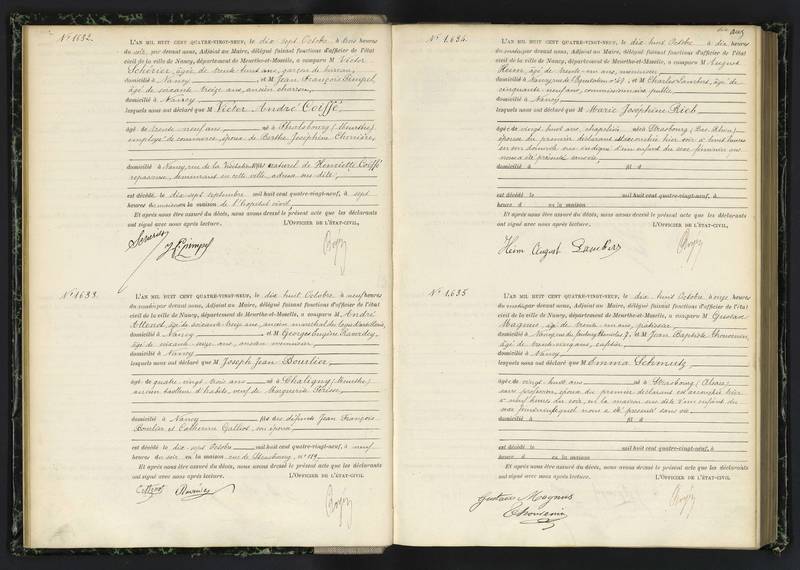 Nº 1632.
L'AN MIL HUIT CENT QUATRE-VINGT-NEUF, le dix sept Octobre à trois heures
du soir, par devant nous, Adjoint au Maire, délégué faisant fonctions d'officier de l'état
civil de la ville de Nancy, département de Meurthe-et-Moselle, a comparu M Victor
âgé de trente huit ans, garçon de bureau,
domicilié à Nancy et M Jean François
âgé de soixante treize ans, ancien charron,
domicilié à Nancy
lesquels nous ont déclaré que M Victor André Coiffé
âgé de trente neuf ans né à Strasbourg (Meurthe)
employé de commerce, époux de Berthe Joséphine
domicilié à Nancy, rue de la fils naturel de Henriette Coiffé
repasseuse, demeurant en cette ville, adresse sus dite,
est décédé le dix sept septembre mil huit cent quatre-vingt-neuf, à sept
heures du matin en la maison de l'hôpital civil
Et après nous être assuré du décès, nous avons dressé le présent acte que les déclarants
ont signé avec nous après lecture. L'OFFICIER DE L'ÉTAT-CIVIL,
Nº 1633.
L'AN MIL HUIT CENT QUATRE-VINGT-NEUF, le dix huit Octobre à neuf heures
du matin par devant nous, Adjoint au Maire, délégué faisant fonctions d'officier de l'état
civil de la ville de Nancy, département de Meurthe-et-Moselle, a comparu M André
âgé de soixante treize ans, ancien maréchal des logis d'artillerie,
domicilié à Nancy et M Georges Eugène
âgé de soixante onze ans, ancien menuisier
domicilié à Nancy
lesquels nous ont déclaré que M Joseph Jean Bourlier
âgé de quatre vingt trois ans né à Chaligny (Meurthe)
ancien tailleur d'habits, veuf de Marguerite
domicilié à Nancy fils des défunts Jean François
Bourlier et Catherine Galliot son épouse
est décédé le dix sept Octobre mil huit cent quatre-vingt-neuf, à neuf
heures du soir en la maison rue de Strasbourg, nº
Et après nous être assuré du décès, nous avons dressé le présent acte que les déclarants
ont signé avec nous après lecture. L'OFFICIER DE L'ÉTAT-CIVIL,
Nº 1.634.
L'AN MIL HUIT CENT QUATRE-VINGT-NEUF, le dix huit Octobre à dix heures
du matin par devant nous, Adjoint au Maire, délégué faisant fonctions d'officier de l'état
civil de la ville de Nancy, département de Meurthe-et-Moselle, a comparu M August
Heim, âgé de trente un ans, menuisier
domicilié à Nancy, rue et M Charles Lambert, âgé de
cinquante neuf ans, commissionnaire public
domicilié à Nancy
lesquels nous ont déclaré que M Marie Joséphine Rieb
âgée de vingt huit ans née à Strasbourg (Bas-Rhin)
épouse du premier déclarant est accouchée hier soir à huit heures
en son domicile sus indiqué d'un enfant du sexe féminin qui
nous a été présenté sans vie
domicilié à fil d
est décédé le mil huit cent quatre-vingt-neuf, à
heures d en la maison
Et après nous être assuré du décès, nous avons dressé le présent acte que les déclarants
ont signé avec nous après lecture. L'OFFICIER DE L'ÉTAT-CIVIL,
Heim August Lambert
Nº 1.635
L'AN MIL HUIT CENT QUATRE-VINGT-NEUF, le dix huit Octobre à onze heures
du matin par devant nous, Adjoint au Maire, délégué faisant fonctions d'officier de l'état
civil de la ville de Nancy, département de Meurthe-et-Moselle, a comparu M Gustave
Magnus, âgé de trente un ans, pâtissier
domicilié à Nancy et M Jean Baptiste Thouvenin,
âgé de
domicilié à Nancy
lesquels nous ont déclaré que M Emma Schmutz
âgée de vingt huit ans née à Strasbourg (Alsace)
sans profession, épouse du premier déclarant est accouchée hier
à neuf heures du soir, en la maison sus dite d'un enfant du
sexe féminin lequel nous a été présenté sans vie
domicilié à fil d
est décédé le mil huit cent quatre-vingt-neuf, à
heures d en la maison
Et après nous être assuré du décès, nous avons dressé le présent acte que les déclarants
ont signé avec nous après lecture. L'OFFICIER DE L'ÉTAT-CIVIL,
Gustave Magnus
Thouvenin